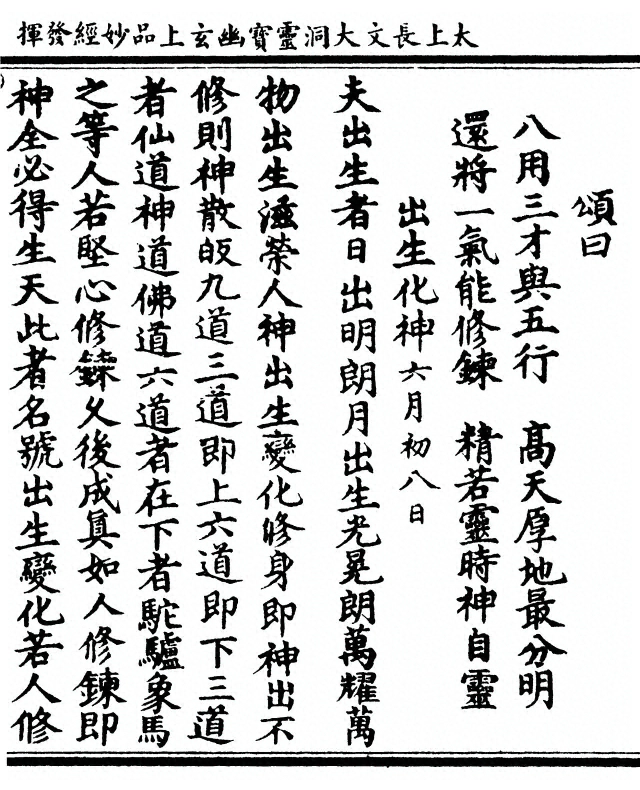 太上長文大洞靈寶幽玄上品妙經發揮
頌曰
八用三才與五行　高天厚地最分明
還將一氣能修鍊　精若靈時神自靈
出生化神六月初八日
夫出生者日出明朗月出生光晃朗萬耀萬
物出生滋榮人神出生變化修身即神出不
修則神散皈九道三道即上六道即下三道
者仙道神道佛道六道者在下者駝驢象馬
之等人若堅心修鍊久後成真如人修鍊即
神全必得生天此者名號出生變化若人修